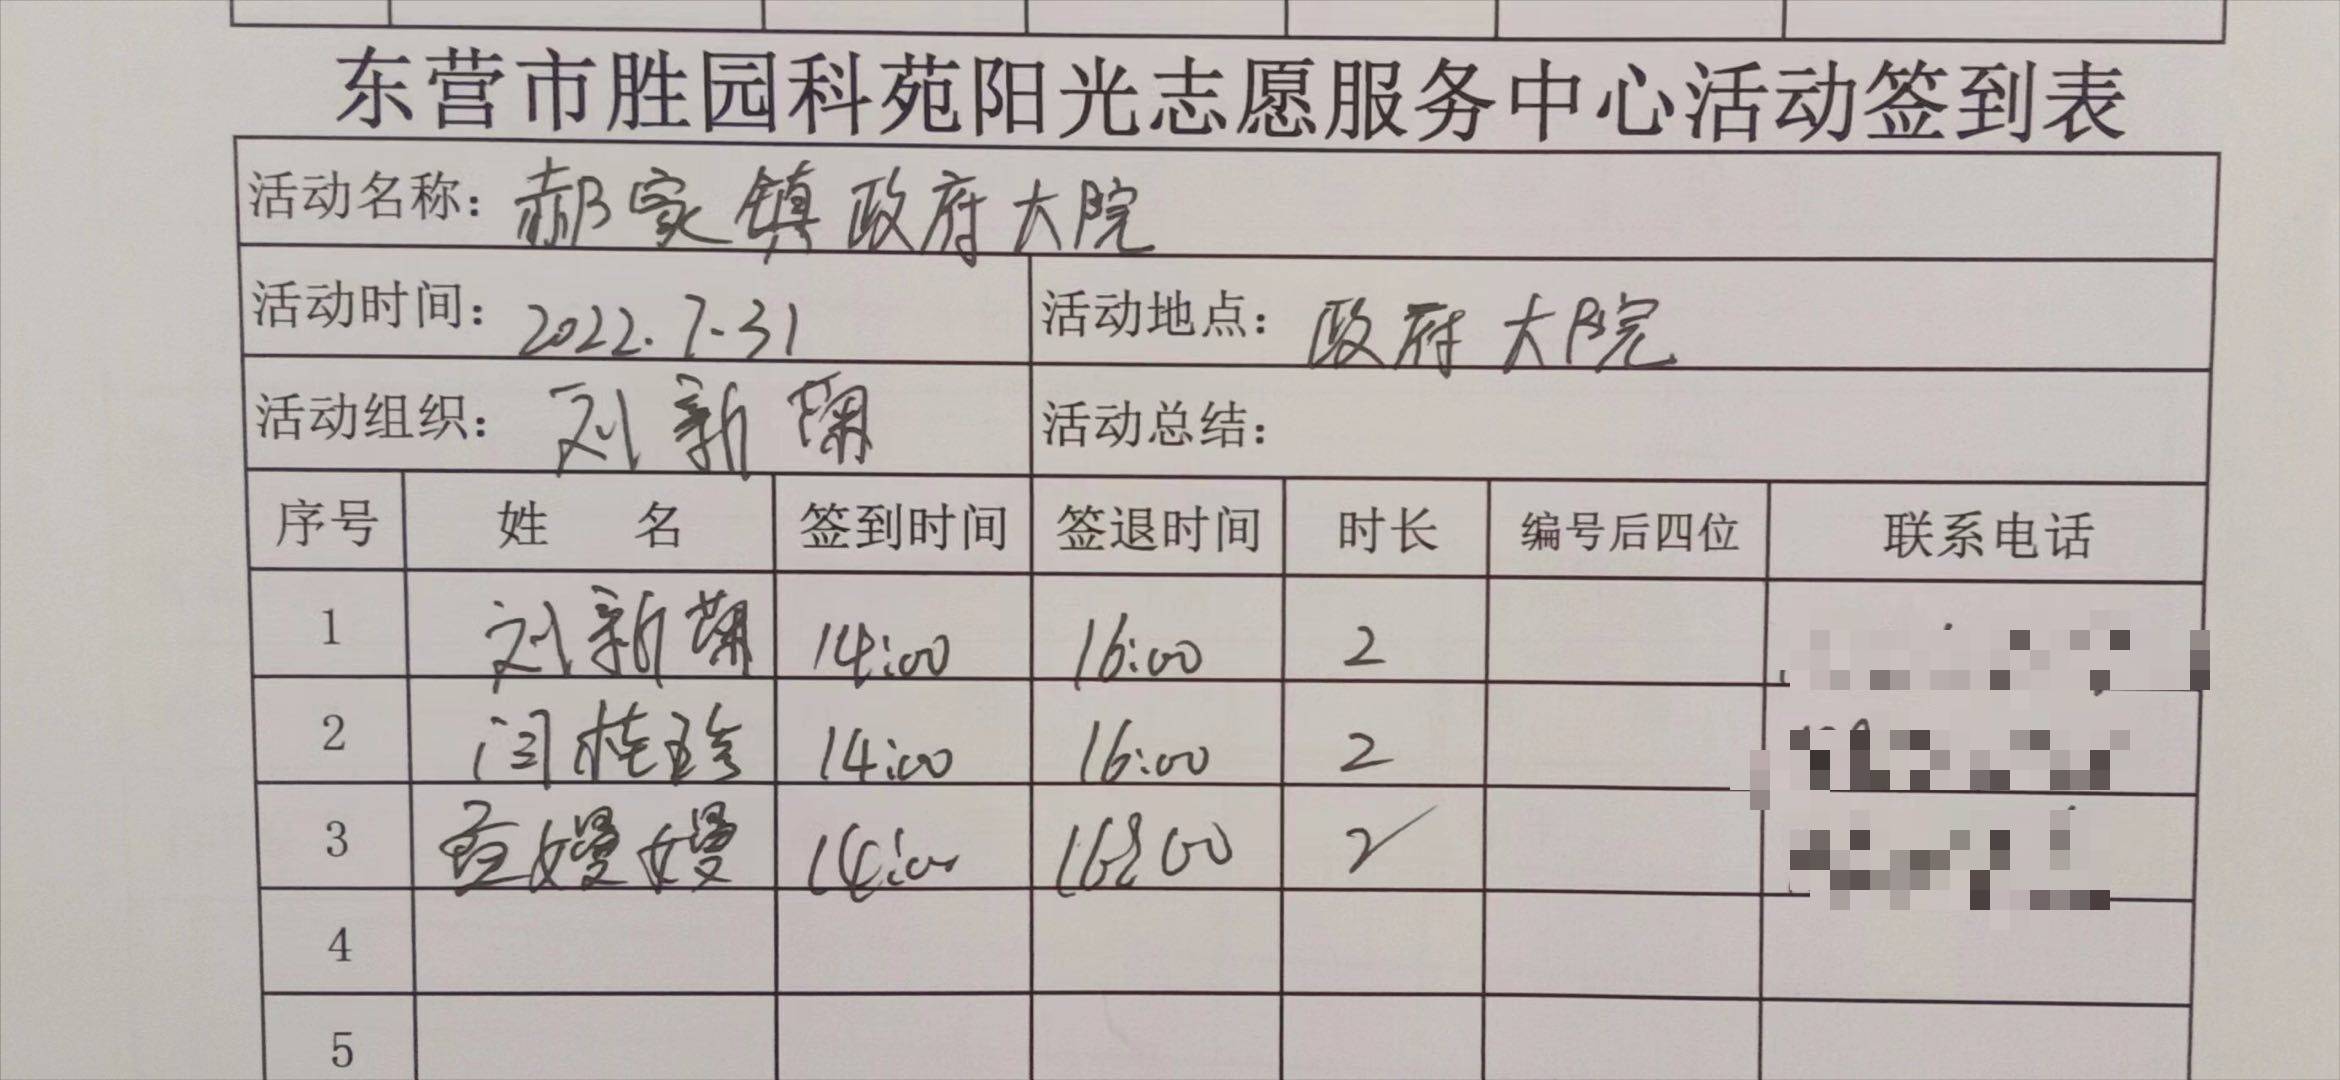 东营市胜园科苑阳光志愿服务中心活动签到表
活动名称：郝家镇政府大院
活动时间：2022.7-31 活动地点：政府大院
活动组织：刘新 活动总结：
序号 姓名 签到时间 签退时间 时长 编号后四位 联系电话
1 刘新 14:00 16:00 2
2 闫桂珍 14:00 16:00 2
3 嫚嫚 14:00 16:00 2
4
5